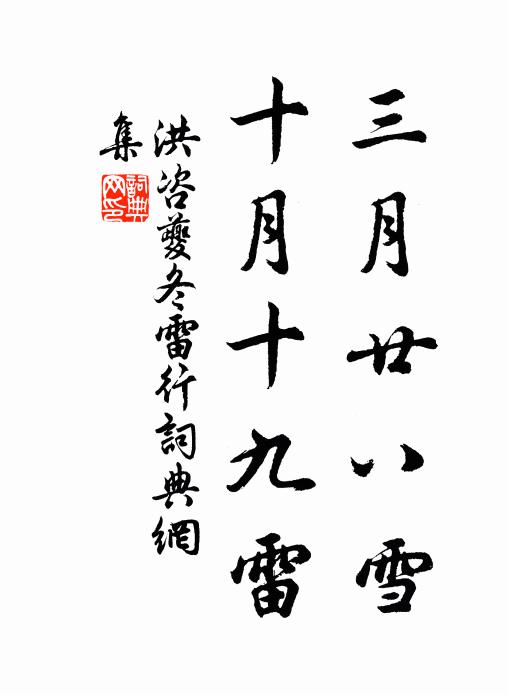 三月廿八雪
十月十九雷
洪咨夔冬雷行詞典網
集
詞典网印